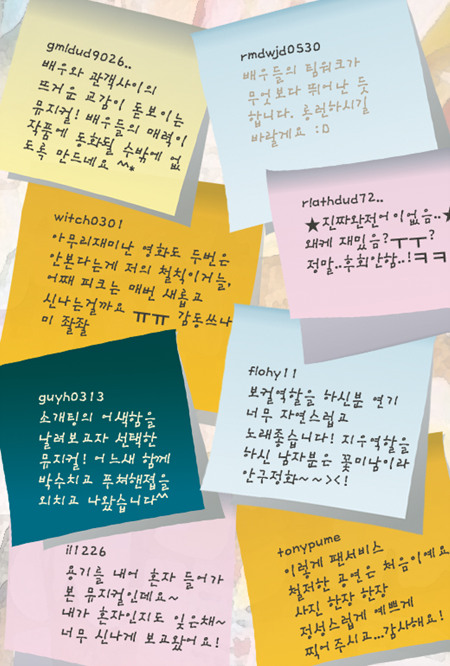 gmldud9026..
배우와 관객사이의
뜨거운 교감이 돋보이는
뮤지컬! 배우들의 매력이
작품에 동화될 수밖에 없
도록 만드네요 ^^*
rmdwjd0530
배우들의 팀워크가
무엇보다 뛰어난 듯
합니다. 롱런하시길
바랄게요 :D
rlathdud72..
★진짜완전어이없음..★
왜케 재밌음?ㅜㅜ?
정말..후회안함..!ㅋㅋ
witch0301
아무리재미난 영화도 두번은
안본다는게 저의 철칙이거늘,
어째 피크는 매번 새롭고
신나는걸까요 ㅠㅠ 감동쓰나
미 좔좔
flohy11
보컬역할을 하신분 연기
너무 자연스럽고
노래좋습니다! 지우역할을
하신 남자분은 꽃미남이라
안구정화~~><!
guyh0313
소개팅의 어색함을
날려보고자 선택한
뮤지컬! 어느새 함께
박수치고 푸쳐핸접을
외치고 나왔습니다^^
il1226
용기를 내어 혼자 들어가
본 뮤지컬인데요~
내가 혼자인지도 잊은채~
너무 신나게 보고왔어요!
tonypume
이렇게 팬서비스
철저한 공연은 처음이예요
사진 한장 한장
정성스럽게 예쁘게
찍어 주시고...감사해요!